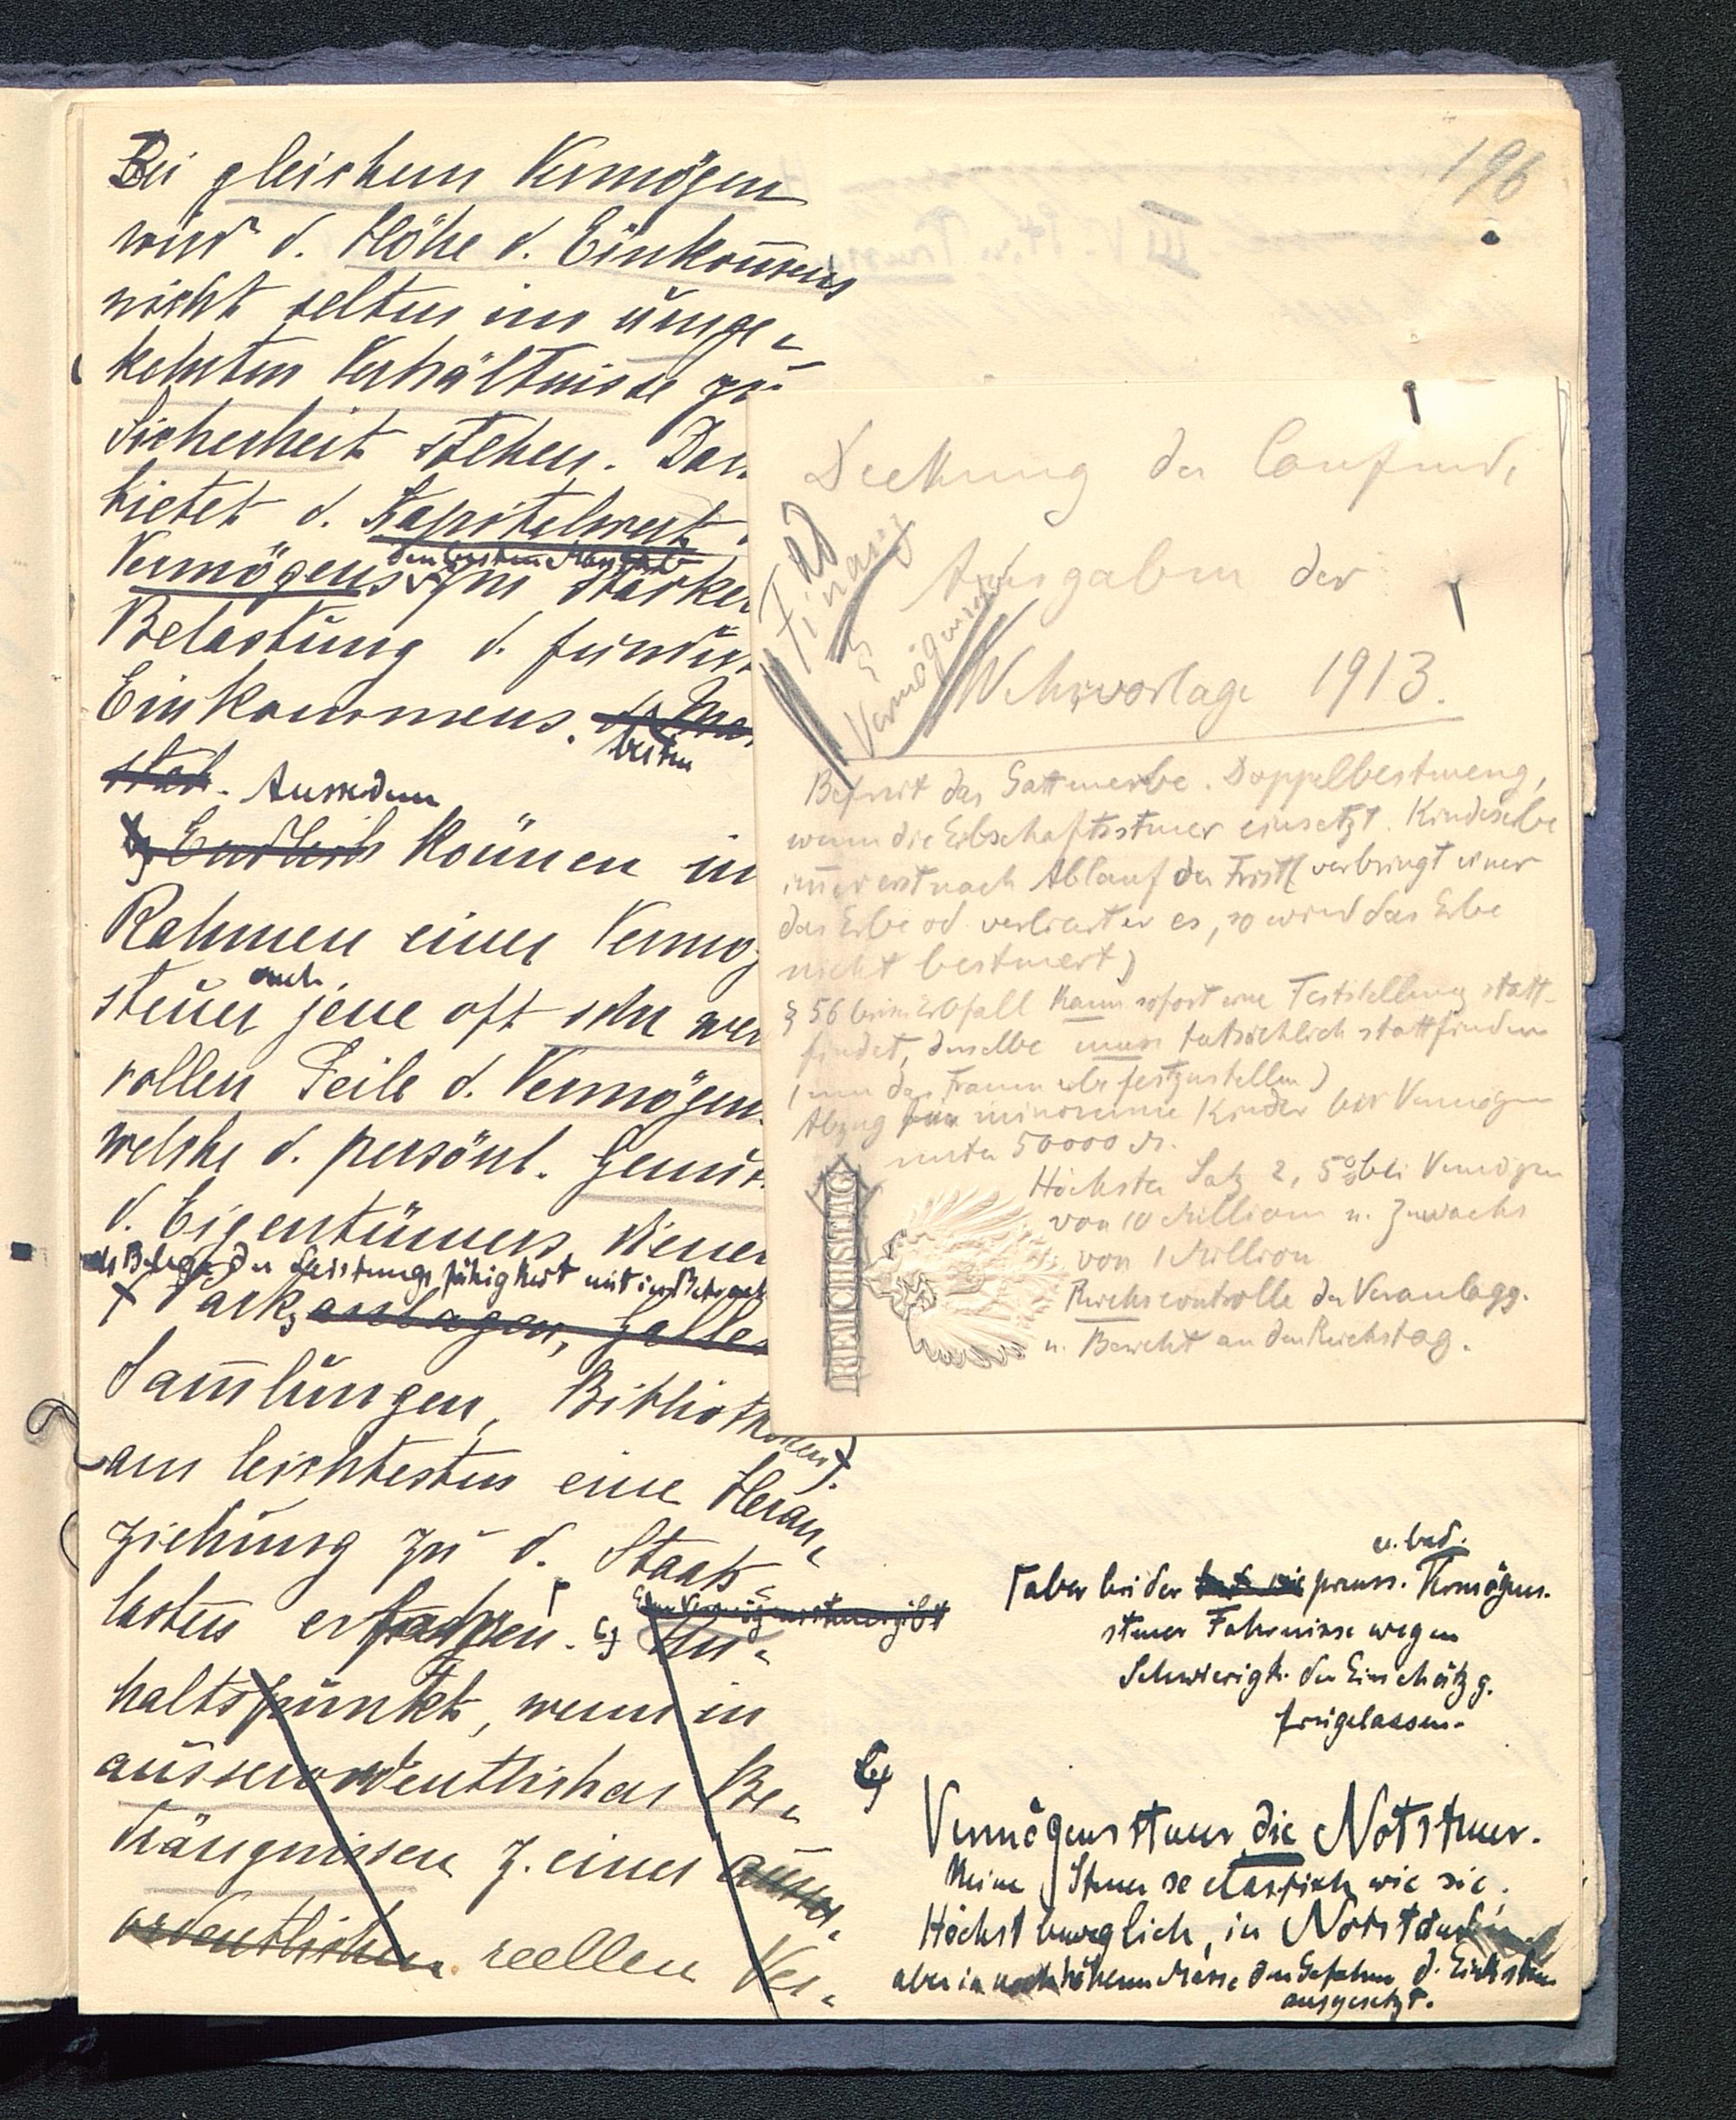 196
Bei gleichem Vermögen
wird d. Höhe d. Einkom̅ens
nicht selten im umge-
kehrten Verhältnisse zur
Sicherheit stehen. Dan
bietet d. Kapitalwert
den besten Massstab
Vermögens zur stärkeren
Belastung d. fundiert
Einkommens. den Mas
besten
stab. Ausserdem
Endlich können im
Rahmen einer Vermög
auch
steuer jene oft sehr wer
vollen Teile d. Vermögen
welche d. persönl. Genuss
d. Eigentümers dienen
als Belege der Leistungsfähigkeit mit in Betracht
Parks anlagen, Galle
Sam̅lungen, Bibliotheken).
am leichtesten eine Heran-
ziehung zu d. Staats-
lasten erfahren. c) An-
Eine Vermögenssteuer gibt
haltspunkt, wenn in
ausserordentlichen Be-
drängnissen z. einer ausser-
ordentlichen reellen Ver-
Deckung der laufend.
Ausgaben der
Wehrvorlage 1913.
ad
Finanz
&
Vermögenssteuer
Befreit das Gattenerbe. Doppelbesteuerg,
wenn die Erbschaftssteuer einsetzt. Kindeserbe
im̅er erst nach Ablauf der Frist (verbringt einer
das Erbe od verliert er es, so wird das Erbe
nicht besteuert)
§ 56 beim Erbfall kann sofort eine Feststellung statt-
findet, dieselbe muss tatsächlich stattfinden
(um das Frauenerbe festzustellen)
Abzug für minorenne Kinder bei Vermögen
unter 50000 M.
Höchster Satz 2,5% bei Vermögen
von 10 Million u. Zuwachs
von 1 Million
Reichscontrolle der Veranlagg.
u. Bericht an den Reichstag.
REICHSTAG
u. bad.
aber bei der preuss. Vermögens-
steuer Fahrnisse wegen
Schwierigk. der Einschätzg.
freigelassen.
c)
Vermögenssteuer die Notsteuer.
Keine Steuer so elastisch wie sie.
Höchst beweglich, in Notständen
aber in noch höherem Masse den Gefahren d. Einksteu
ausgesetzt.